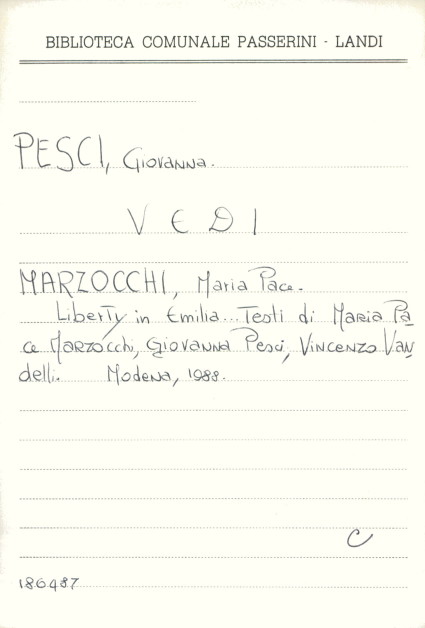 BIBLIOTECA COMUNALE PASSERINI - LANDI
PESCI, Giovanna.
VEDI
MARZOCCHI, Maria Pace.
Liberty in Emilia... Testi di Maria Pa-
ce Marzocchi, Giovanna Pesci, Vincenzo Van-
delli. Modena, 1988.
C
186487